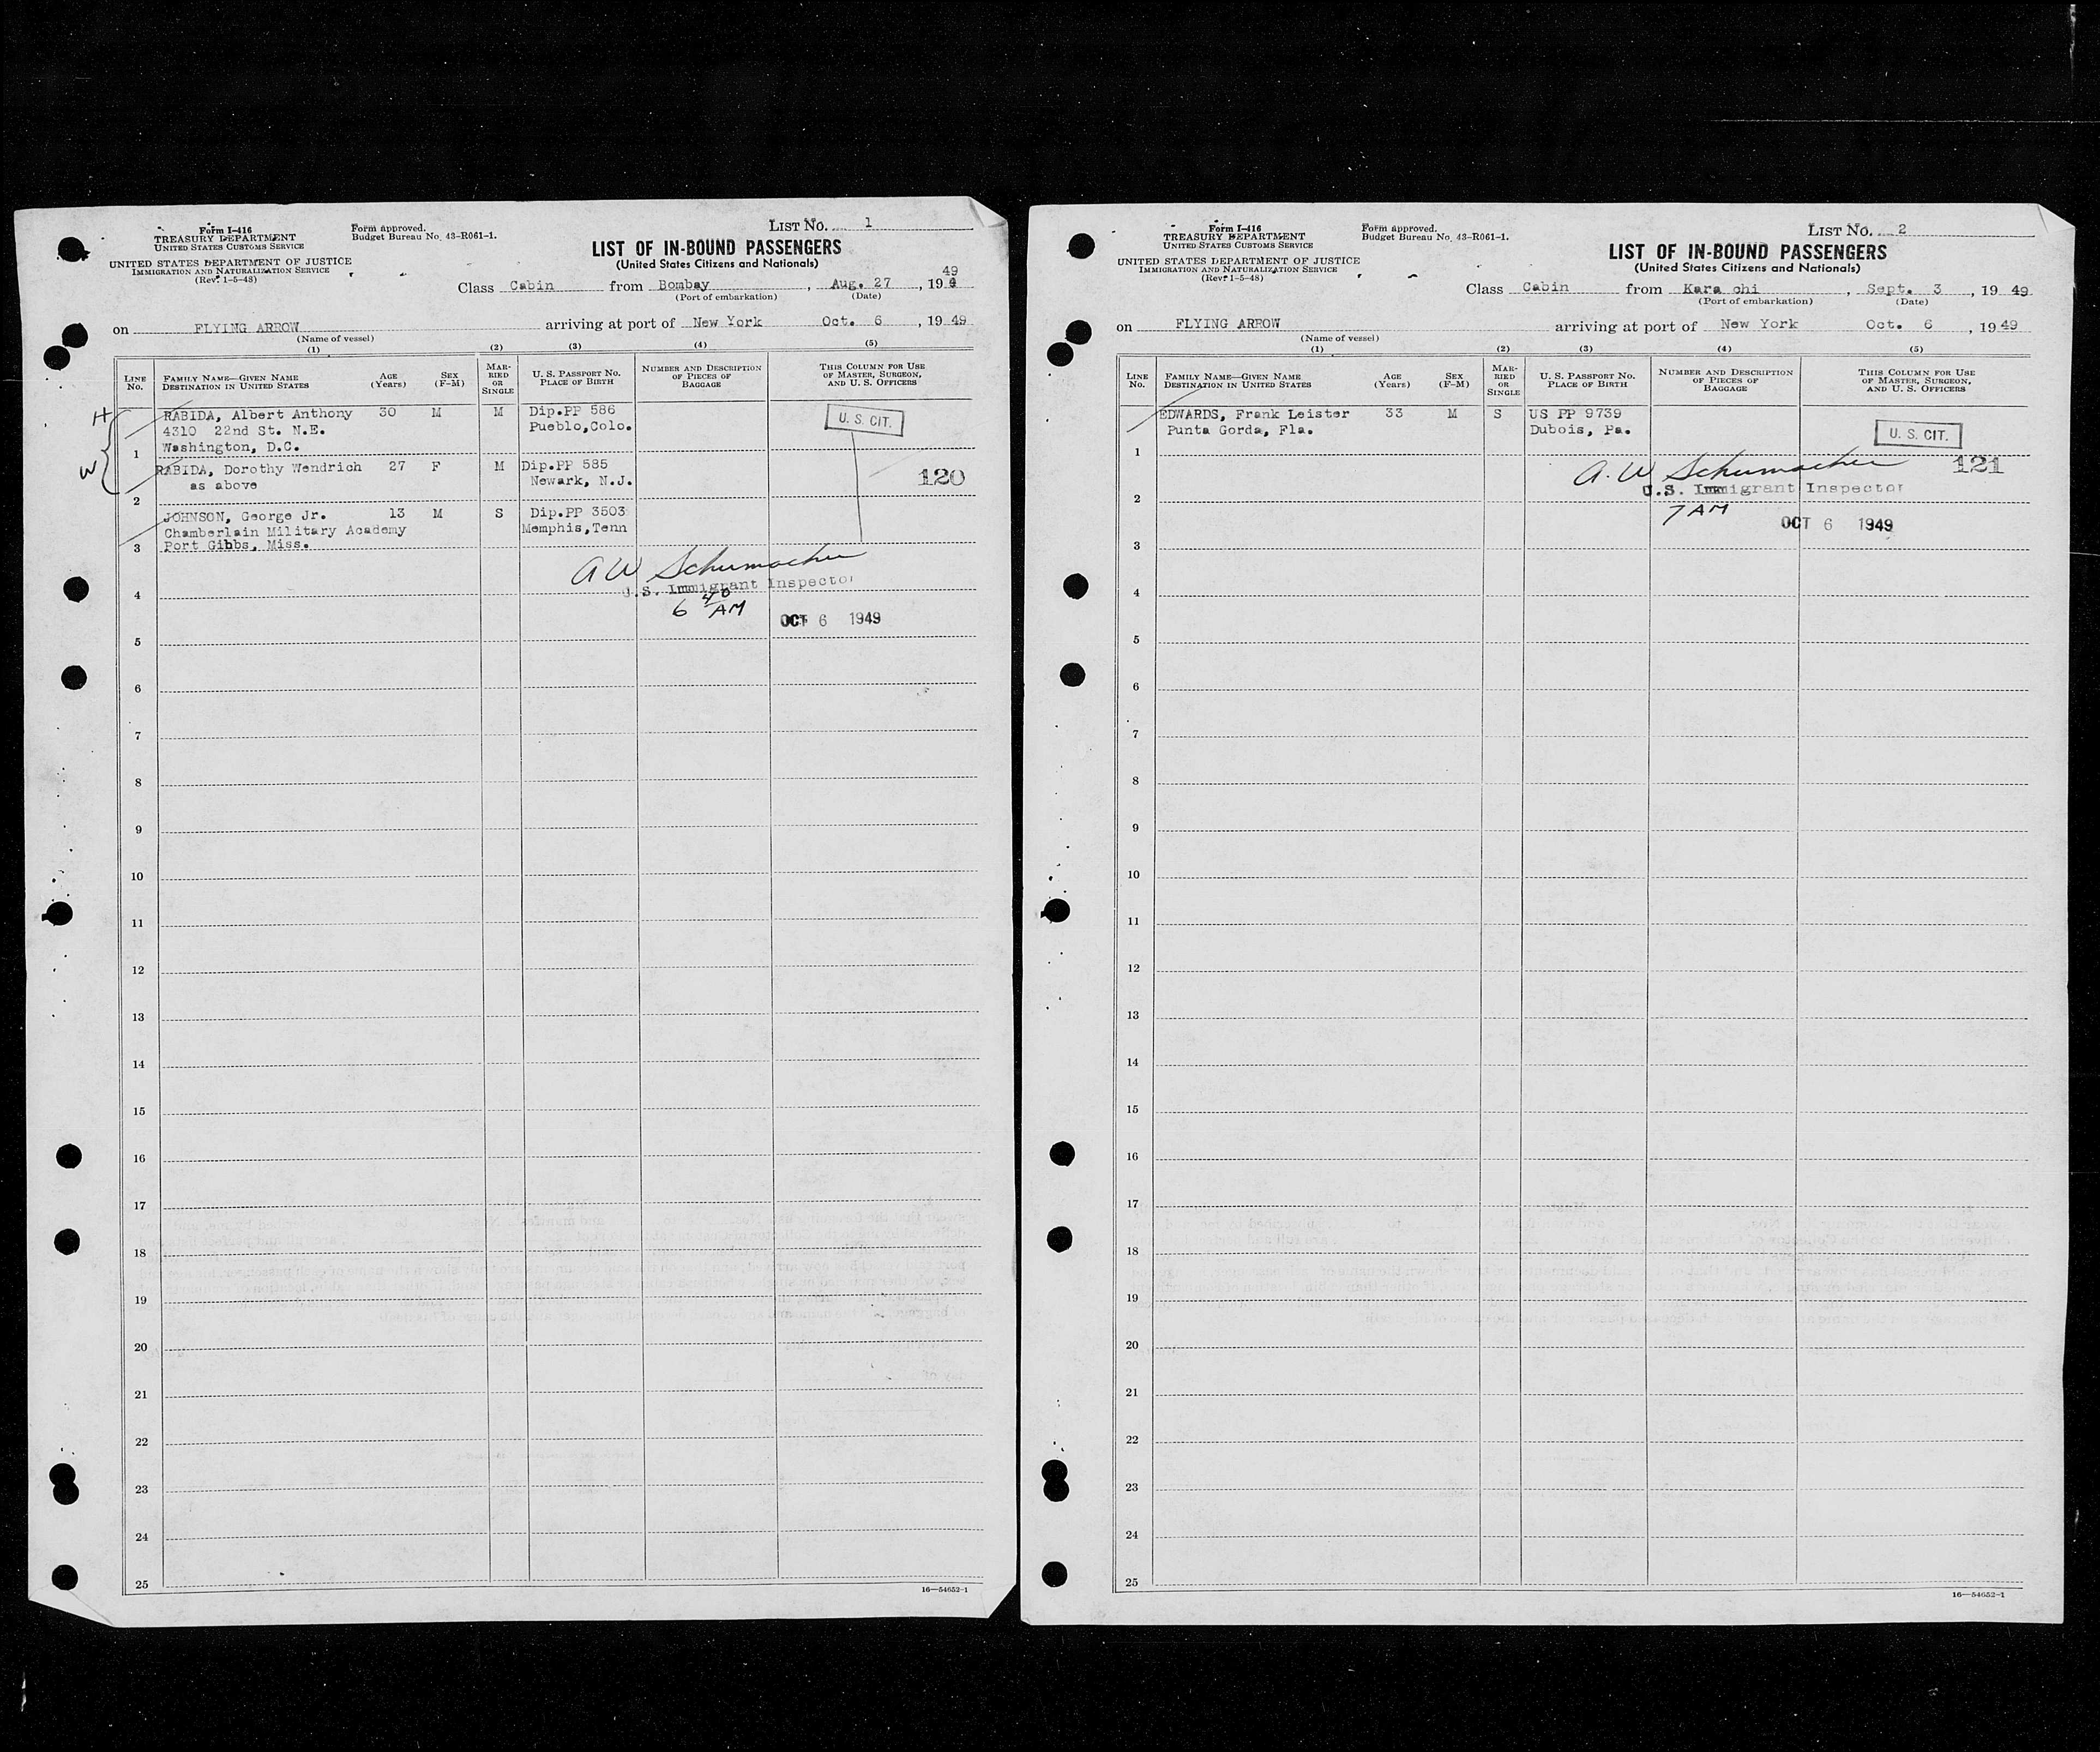 Form I-416
TREASURY DEPARTMENT
UNITED STATES CUSTOMS SERVICE
UNITED STATES DEPARTMENT OF JUSTICE
IMMIGRATION AND NATURALIZATION SERVICE
(Rev. 1-5-48)
Form approved.
Budget Bureau No. 43-R061-1.
LIST No. 1
LIST OF IN-BOUND PASSENGERS
(United States Citizens and Nationals)
49
Class Cabin from Bombay, Aug. 27, 19
(Port of embarkation) (Date)
on FLYING ARROW arriving at port of New York Oct. 6, 1949
(Name of vessel)
(1) (2) (3) (4) (5)
LINE No. FAMILY NAME—GIVEN NAME DESTINATION IN UNITED STATES AGE (Years) SEX (F-M) MARRIED OR SINGLE U. S. PASSPORT NO. PLACE OF BIRTH NUMBER AND DESCRIPTION OF PIECES OF BAGGAGE THIS COLUMN FOR USE OF MASTER, SURGEON, AND U. S. OFFICERS
H RABIDA, Albert Anthony 30 M M Dip.PP 586 U. S. CIT.
4310 22nd St. N.E. Pueblo,Colo.
1 Washington, D.C.
W RABIDA, Dorothy Wendrich 27 F M Dip.PP 585 120
2 as above Newark, N.J.
JOHNSON, George Jr. 13 M S Dip.PP 3503
Chamberlain Military Academy Memphis,Tenn
3 Port Gibbs, Miss.
A W Schumacher
4 U.S. Immigrant Inspector
6 40 AM OCT 6 1949
5
6
7
8
9
10
11
12
13
14
15
16
17
18
19
20
21
22
23
24
25
16—54652-1
Form I-416
TREASURY DEPARTMENT
UNITED STATES CUSTOMS SERVICE
UNITED STATES DEPARTMENT OF JUSTICE
IMMIGRATION AND NATURALIZATION SERVICE
(Rev. 1-5-48)
Form approved.
Budget Bureau No. 43-R061-1.
LIST No. 2
LIST OF IN-BOUND PASSENGERS
(United States Citizens and Nationals)
Class Cabin from Kara chi, Sept. 3, 1949
(Port of embarkation) (Date)
on FLYING ARROW arriving at port of New York Oct. 6, 1949
(Name of vessel)
(1) (2) (3) (4) (5)
LINE No. FAMILY NAME—GIVEN NAME DESTINATION IN UNITED STATES AGE (Years) SEX (F-M) MARRIED OR SINGLE U. S. PASSPORT NO. PLACE OF BIRTH NUMBER AND DESCRIPTION OF PIECES OF BAGGAGE THIS COLUMN FOR USE OF MASTER, SURGEON, AND U. S. OFFICERS
EDWARDS, Frank Leister 33 M S US PP 9739
Punta Gorda, Fla. Dubois, Pa. U. S. CIT.
1
A. W Schumacher 121
2 U.S. Immigrant Inspector
7 AM OCT 6 1949
3
4
5
6
7
8
9
10
11
12
13
14
15
16
17
18
19
20
21
22
23
24
25
16—54652-1